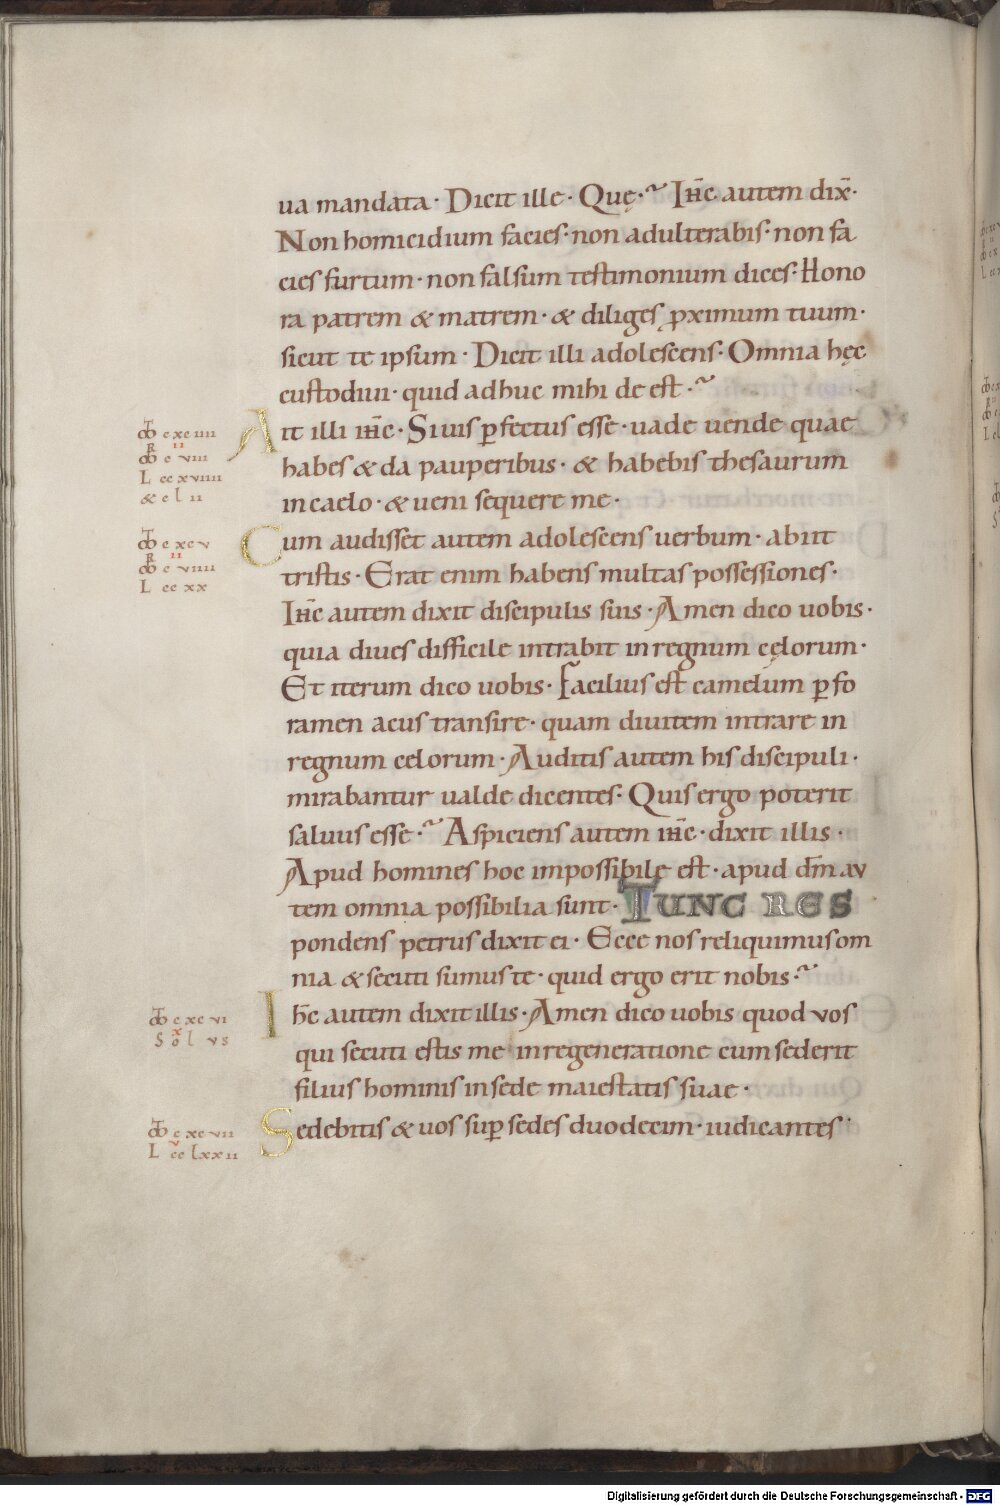 ua mandata · Dicit ille · Quę · Ih̄c autem dix̄ ·
Non homicidium facies · non adulterabis · non fa
cies furtum · non falsum testimonium dices · Hono
ra patrem & matrem · & diliges p̱ximum tuum ·
sicut te ipsum · Dicit illi adolescens · Omnia hęc
custodiui · quid adhuc mihi de est ·
Ait illi ih̄c · Si uis ꝑfectus esse · uade uende quae
habes & da pauperibus · & habebis thesaurum
in caelo · & ueni sequere me ·
Cum audisset autem adolescens uerbum · abiit
tristis · Erat enim habens multas possessiones ·
Ih̄c autem dixit discipulis suis · Amen dico uobis ·
quia diues difficile intrabit in regnum cęlorum ·
Et iterum dico uobis · Facilius est camelum ꝑ fo
ramen acus transire · quam diuitem intrare in
regnum celorum · Auditis autem his discipuli ·
mirabantur ualde dicentes · Quis ergo poterit
saluus esse · Aspiciens autem ih̄c · dixit illis ·
Apud homines hoc impossibile est · apud dm̄ au
tem omnia possibilia sunt · TUNC RES
pondens petrus dixit ei · Ecce nos reliquimus om
nia & secuti sumus te · quid ergo erit nobis ·
Ih̄c autem dixit illis · Amen dico uobis quod vos
qui secuti estis me in regeneratione cum sederit
filius hominis in sede maiestatis suae ·
Sedebitis & uos suꝑ sedes duodecim · iudicantes
c xc iiii
R ii
c viii
L cc xviiii
& c l ii
c xc v
R ii
c viiii
L cc xx
c xc vi
x
Sol vs
c xc vii
v
L cc lxx ii
Digitalisierung gefördert durch die Deutsche Forschungsgemeinschaft - DFG